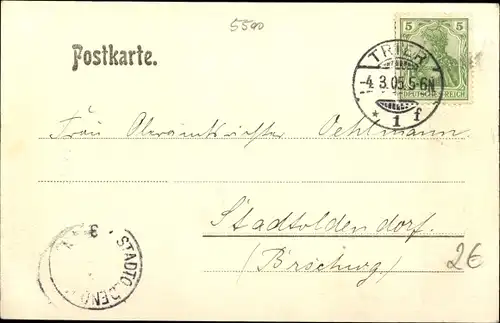 5500
Postkarte.
5
DEUTSCHES REICH
TRIER
-4.3.05.5-6N
* 1 f
Frau Oberamtsrichter Oehlmann
Stadtoldendorf.
(Brschwg)
26
STADTOLDEND